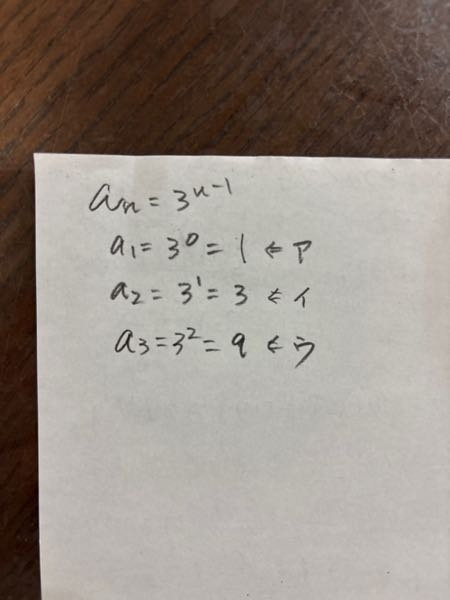 aₙ = 3ⁿ⁻¹
a₁ = 3⁰ = 1 ← ア
a₂ = 3¹ = 3 ← イ
a₃ = 3² = 9 ← ウ